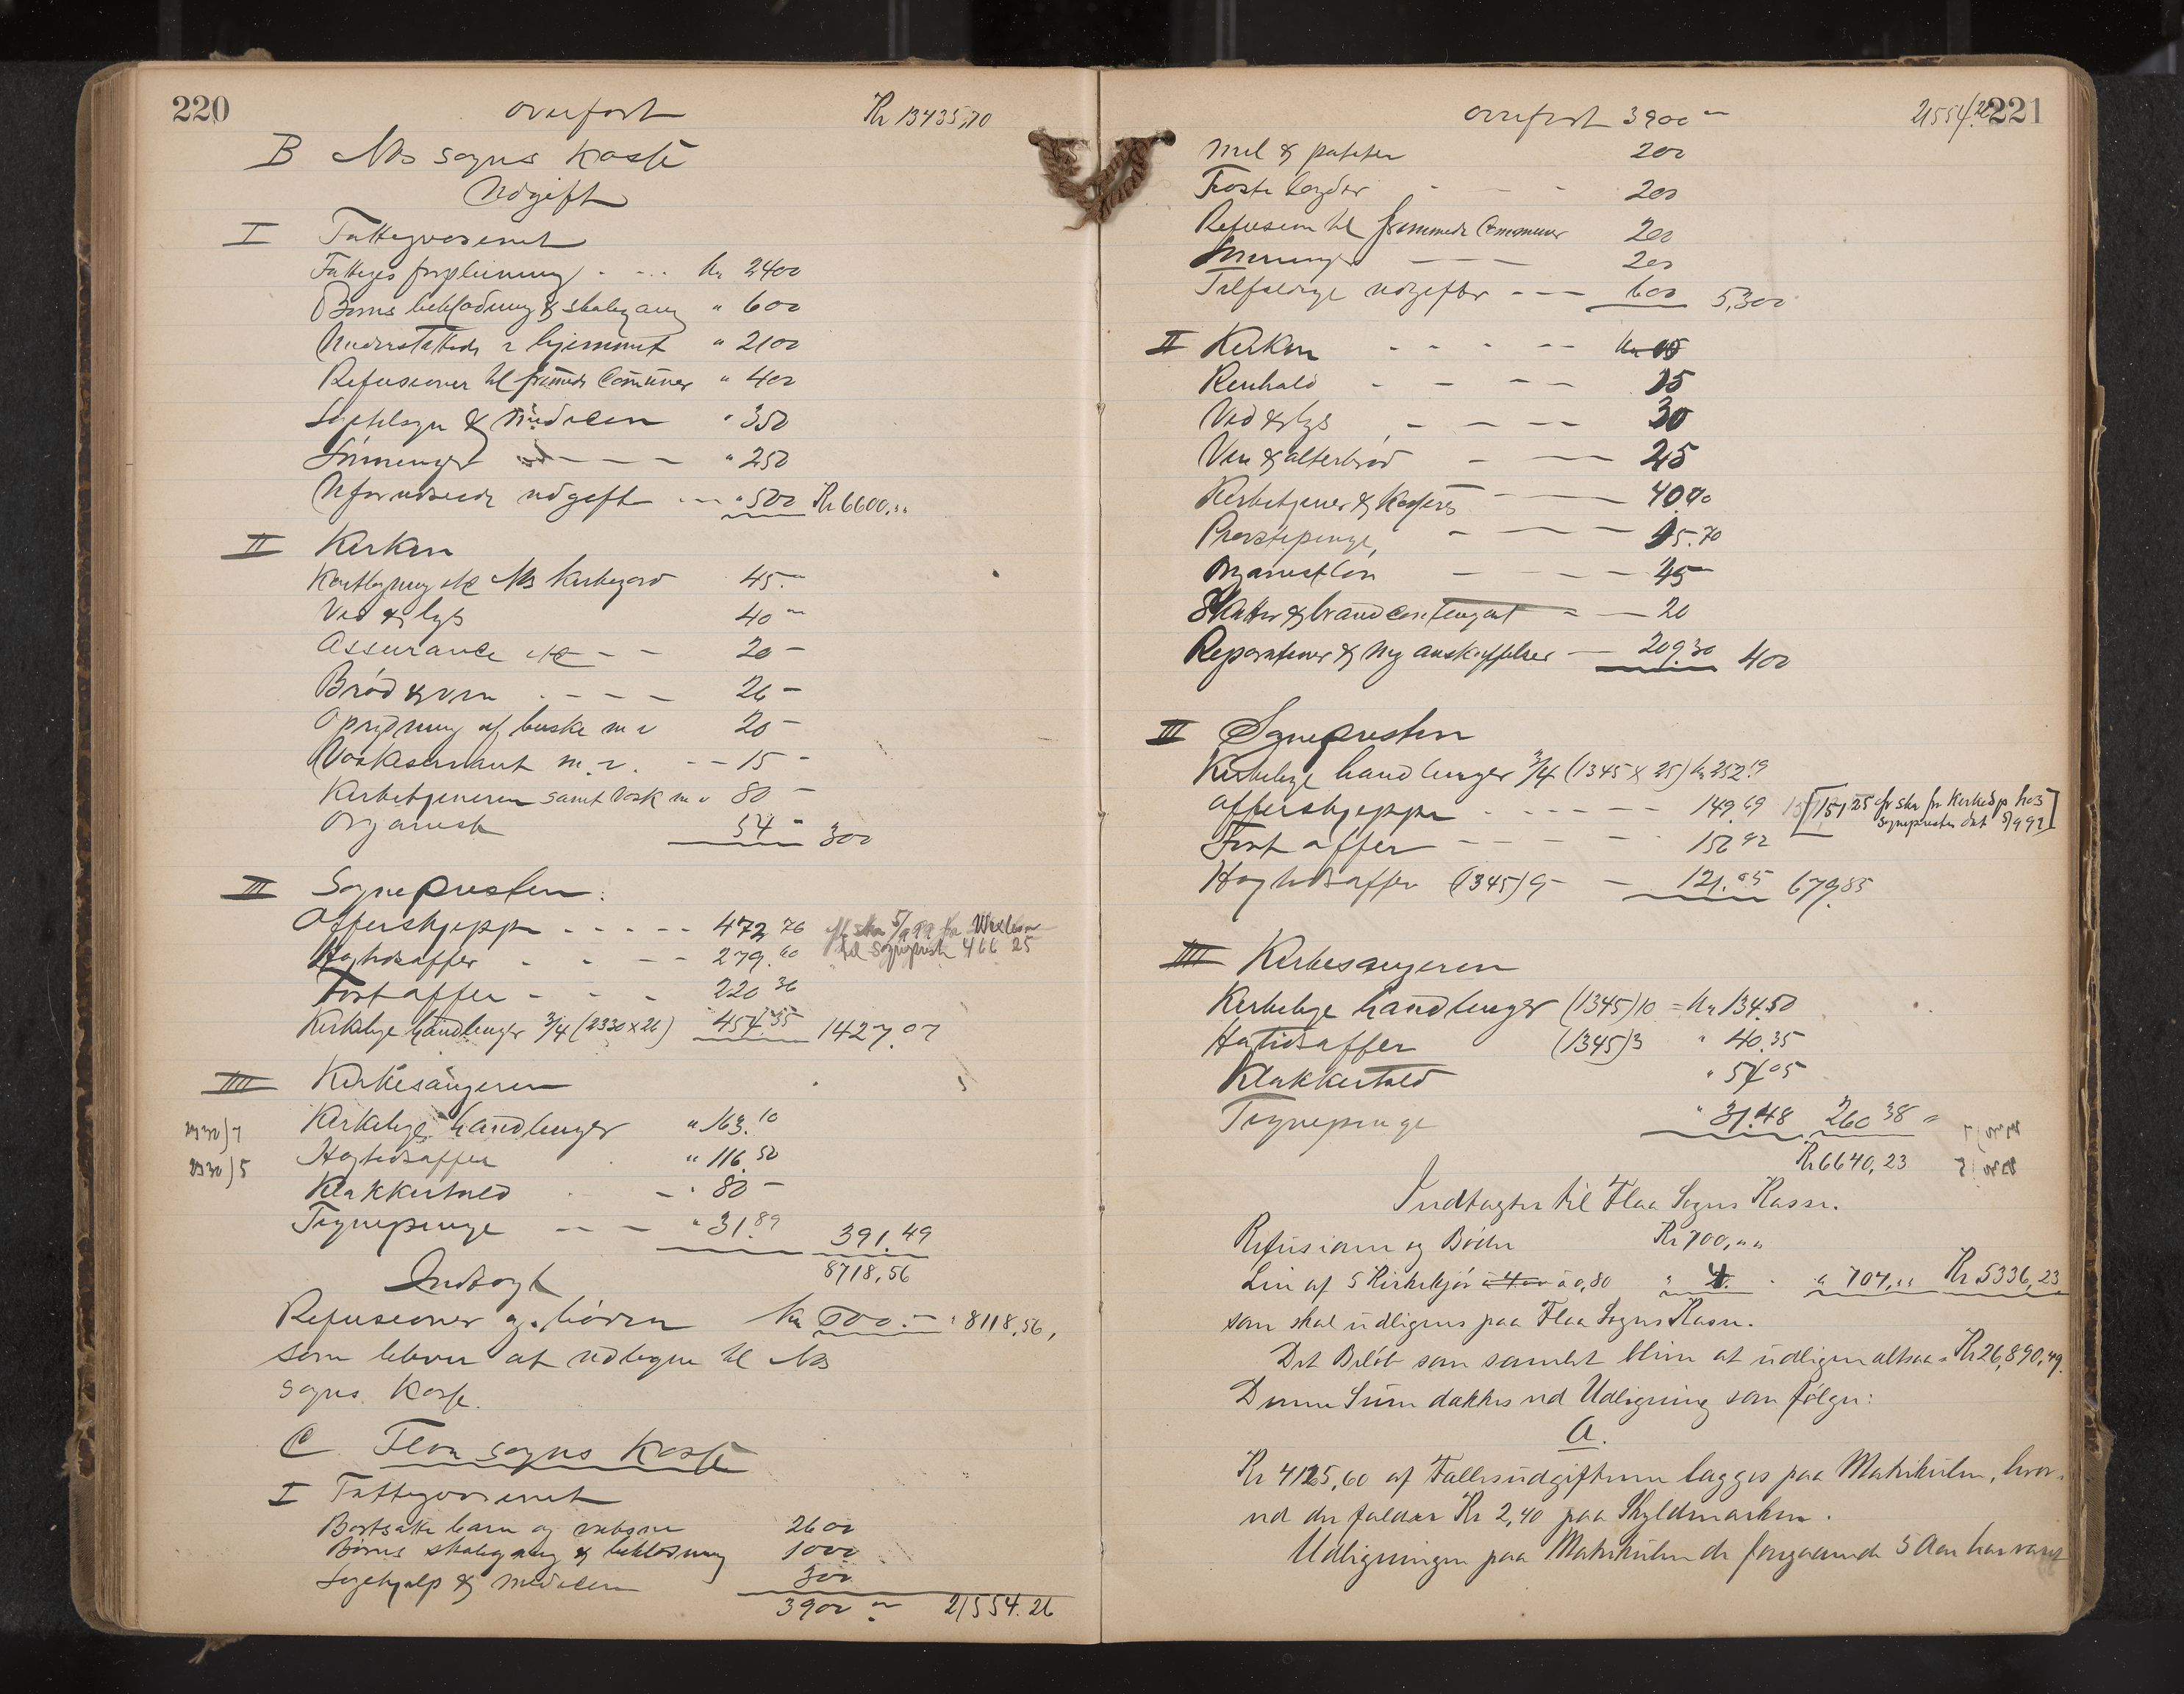 220
overført Kr 13435,70
B Næs sogns kasse
Udgift
I Fattigvæsenet
Fattiges forpleining - - - Kr 2400
Børns beklædning & skolegang " 600
Understøttede i hjemmet " 2100
Refusioner til fremede Comuner " 400
Lægetilsyn & Medicin " 350
Lønninger - - - " 250
Uforudseede udgift - - " 500 Kr 6600,"
II Kirken
Næs kirkegård 45.-
Ved & lys 40 -
Assurance etc - - 20 -
Brød & vin - - - 26 -
Oprydning af buske m v 20 -
Vaskeservant m. v. - - 15 -
Kirketjeneren samt Vask m v 80 -
Organist 54 - 300
III Sognepresten:
Offerskjeppe - - - - - 472,76
Høytidsoffer - - - - 279.60 til sogneprest 466 25
Fast offer - - - 220 36
Kirkelige handlinger 3/4 (2330 x 26) 454.35 1427.07
IIII Kirkesangeren
2330)7 Kirkelige handlinger " 163.10
2330)5 Høytidsoffer " 116.50
Klokkertold - - " 80 -
Tegnepenge - - - " 31.89 391.49
8718,56
Indtægt
Refusioner og bøder Kr 600.- " 8118,56,
som bliver at udligne til Næs
sogns kasse.
C. Flaa sogns kasse
I Fattigvæsenet
Bortsatte barn og voksne 2600
Børns skolegang & beklædning 1000
Lægehjælp & medicin 300
3900 - 21554.26
221
overført 3900 - 21554.26
Mel & poteter 200
Faste lægder - - - 200
Refusion til fremmede Communer 200
Lønninger - - - 200
Tilfældige udgifter - - - 600 5,300
II Kirken - - - - - Kr
Renhold - - - - 15
Ved & lys - - - - 30
Vin & alterbrød - - - 25
Kirketjener & Kasserer - - 40.70
Provstepenge, - - - 15.70
Organistløn - - - - 45
Skatter & brandcontingent - - 20
Reparationer & nyanskaffelser - 209.30 400
III Sognepresten
Kirkelige handlinger 3/4 (1345 x 25) kr 252.19
Offerskjeppe - - - - - 149.69 [151 25 ifr skr fra Kirkedp hos
sognepresten dat 5/9 92]
Fast offer - - - - 156 92
Høytidsoffer (1345) 9 - - 121.05 679,85
IIII Kirkesangeren
Kirkelige handlinger (1345)10 = Kr 134.50
Høitidsoffer (1345)3 " 40.35
Klokkertold " 54 05
Tegnepenge " 31.48 260 38 "
Kr 6640,23
Indtægter til Flaa Sogns Kasse.
Refusioner og Bøder Kr 700,""
Lei af 5 Kirkekjør à 4.00 à 0,80 " 4. " " 704,"" Kr 5336,23
som skal udlignes paa Flaa Sogns Kasse.
Det Beløb som samlet bliver at udligne altsaa = Kr 26,890,49.
Denne Sum dækkes ved Udligning som følger:
A.
Kr 4125,60 af Fællesudgifterne lægges paa Matrikulen, hvor-
ved der falder Kr 2,40 paa Skyldmarken.
Udligningen paa Matrikulen de foregaaende 5 Aar har været